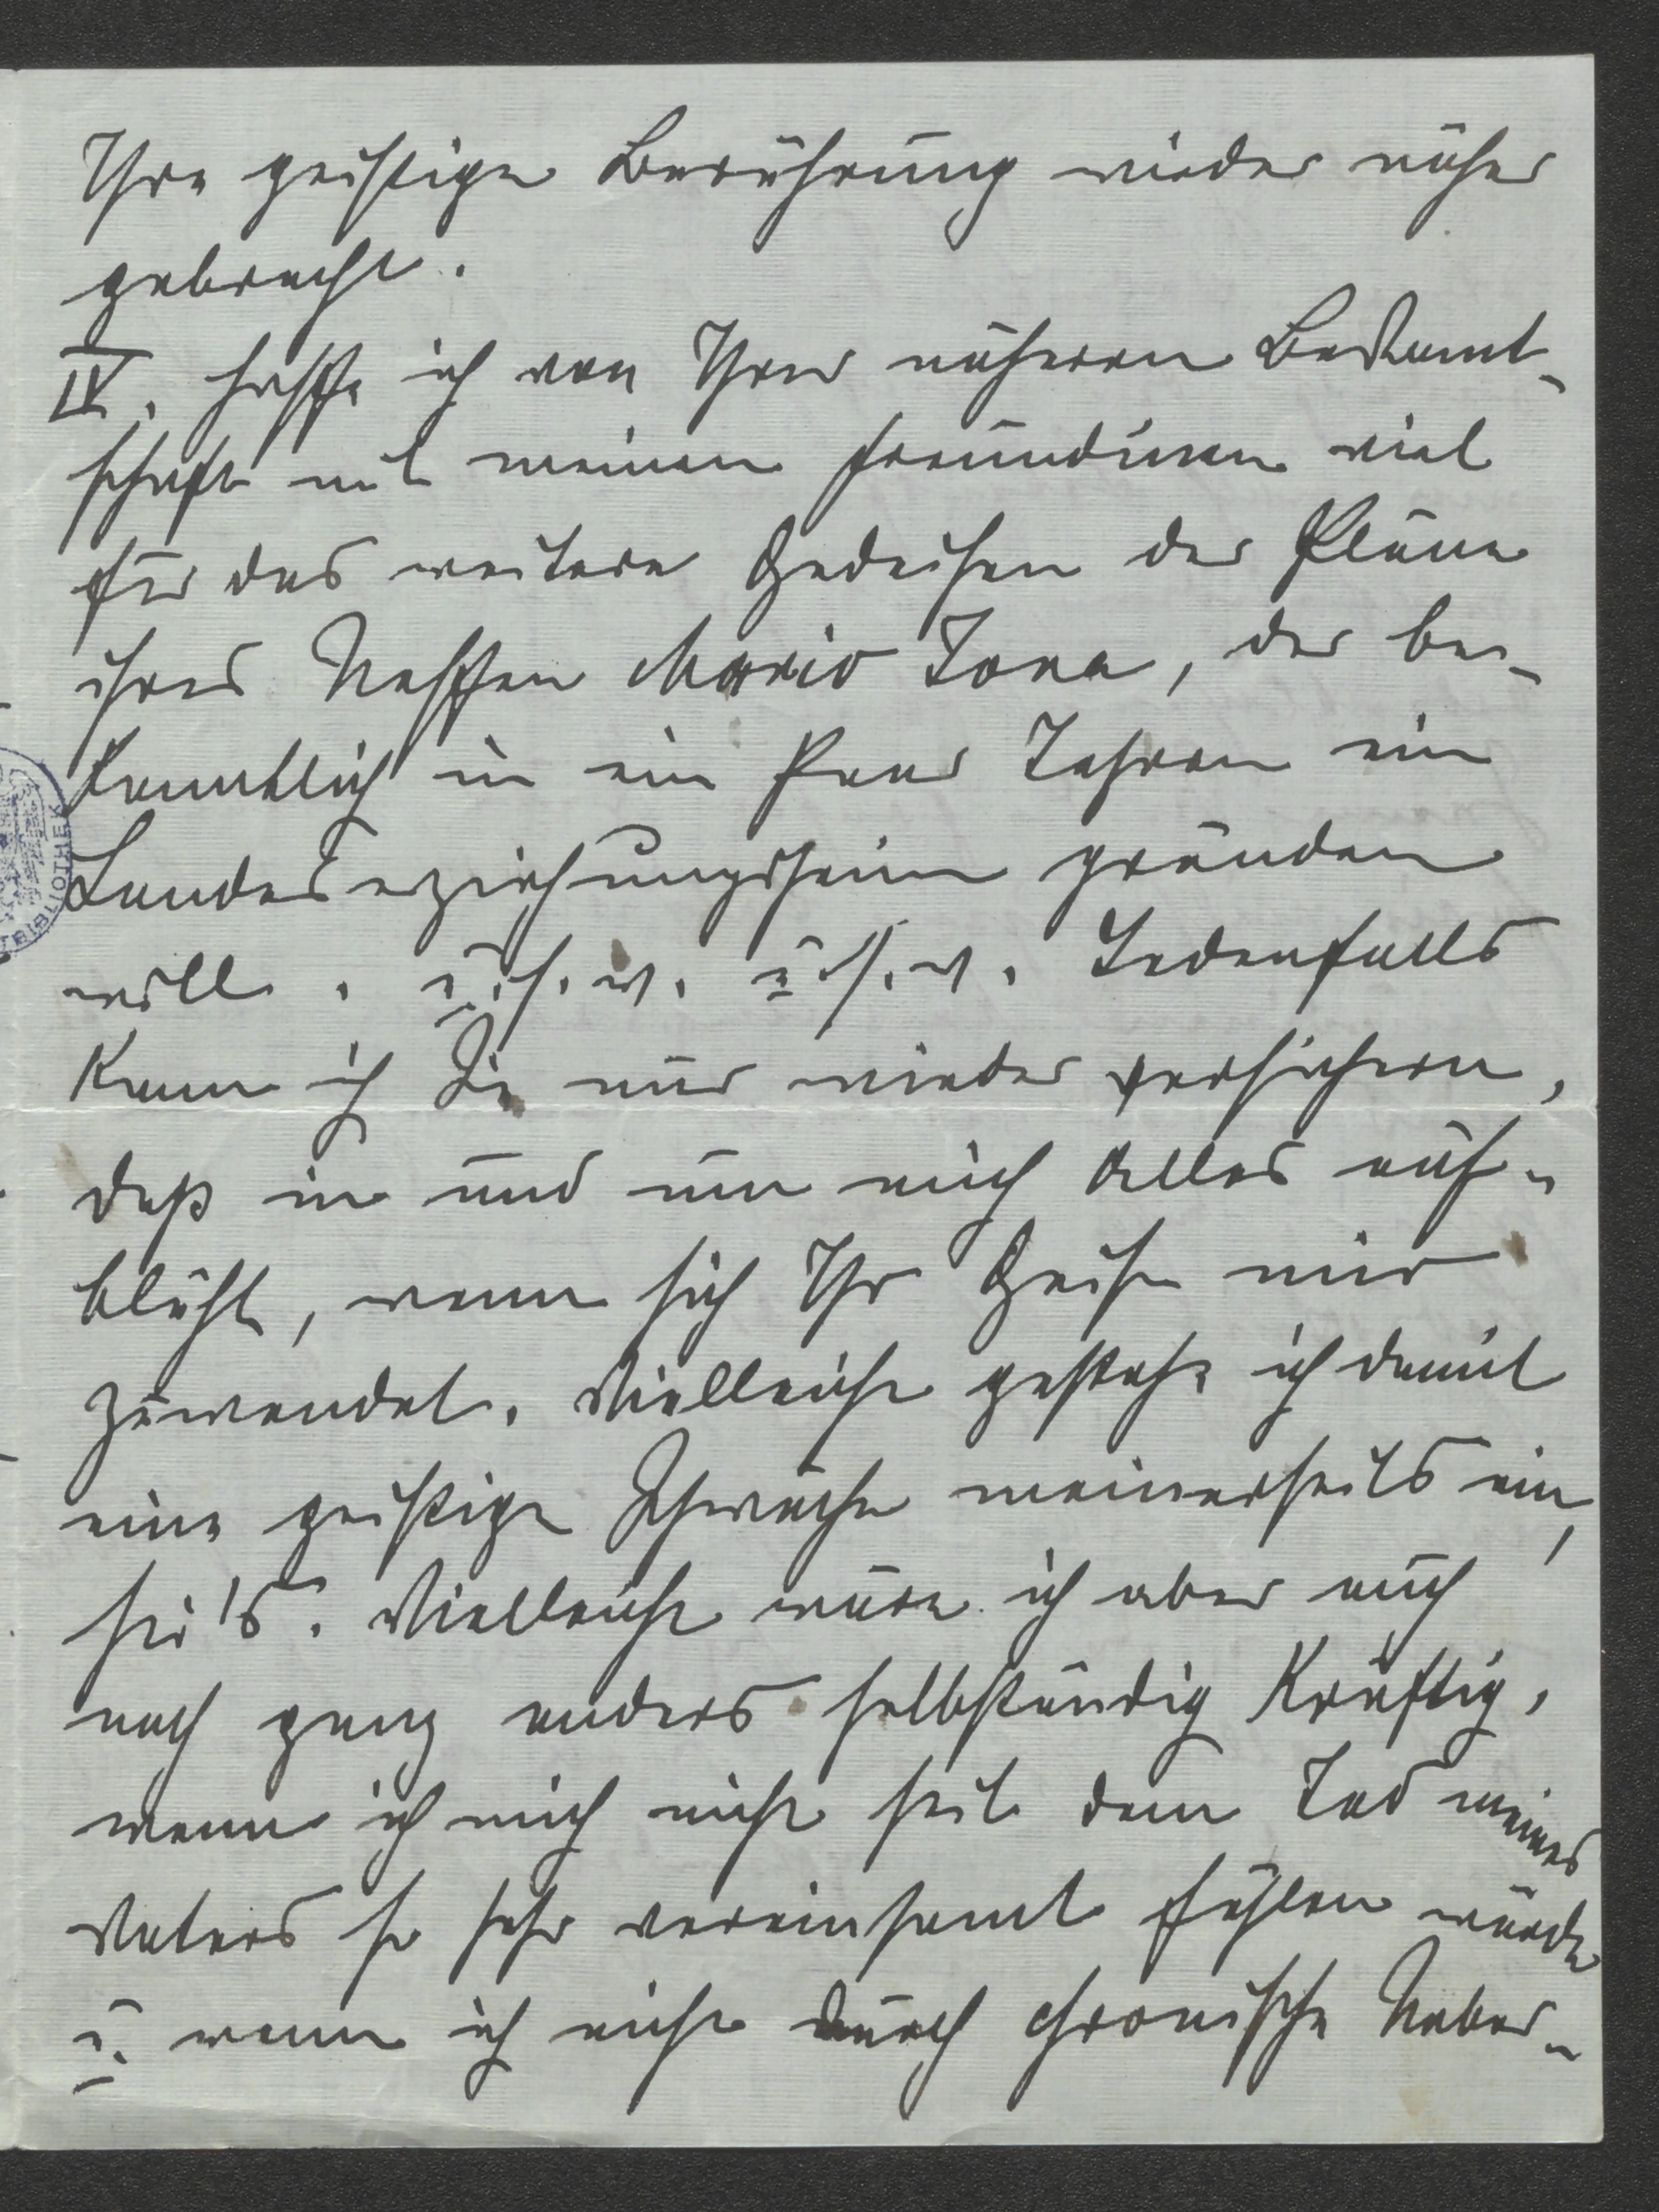 Ihre geistige Berührung wieder näher
gebracht.
IV. hoffe ich von Ihrer näheren Bekannt-
schaft mit meinen Freundinnen viel
für das weitere Gedeihen der Pläne
ihres Neffen Mario Jona, der be-
kanntlich in ein Paar Jahren ein
Landeserziehungsheim gründen
will. u.s.w. u.s.w. Jedenfalls
kann ich Sie nur wieder versichern,
daß in und um mich Alles auf-
blüht, wenn sich Ihr Geist mir
zuwendet. Vielleicht gestehe ich damit
eine geistige Schwäche meinerseits ein,
sei's. Vielleicht wäre ich aber auch
noch ganz anders selbständig kräftig,
wenn ich mich nicht seit dem Tod meines
Vaters so sehr vereinsamt fühlen würde
u. wenn ich nicht durch chronische Ueber-
BIBLIOTHEK